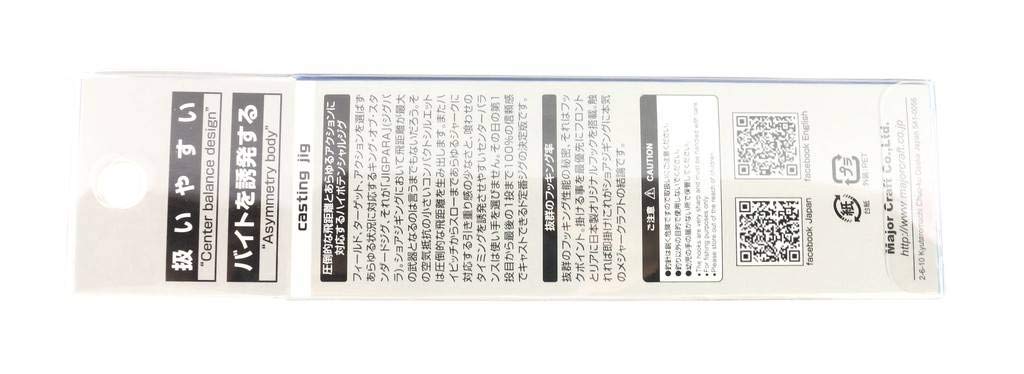 扱いやすい
"Center balance design"
バイトを誘発する
"Asymmetry body"
casting jig
圧倒的な飛距離とあらゆるアクションに
対応するハイポテンシャルジグ
フィールド、ターゲット、アクションを選ばず
あらゆる状況に対応するキング・オブ・スタ
ンダードジグ、それが「JIGPARA」(ジグパ
ラ)。ショアジギングにおいて飛距離が最大
の武器となるのは言うまでもないだろう。そ
の空気抵抗の小さいコンパクトシルエット
は圧倒的な飛距離を生み出します。またハ
イピッチからスローまであらゆるジャークに
対応する引き重り感の少なさと、喰わせの
タイミングを誘発させやすいセンターバラ
ンスは使い手を選びません。その日の第1
投目から最後の1投まで100%の信頼感
でキャストできるド定番ジグの決定版です。
抜群のフッキング率
抜群のフッキング性能の秘密、それはフッ
クポイント。掛ける事を最優先にフロント
とリアに日本製オリジナルフックを搭載。触
れれば即掛け!これがショアジギング本気
のメジャークラフトの結論です。
ご注意 CAUTION
●釣針は鋭く危険ですので取扱いにご注意ください。
●釣り以外の目的で使用しないでください。
●幼児の手の届かない所で保管してください。
●The hooks are very sharp
●For fishing purposes only.
●Please store out of the reach of children.
facebook Japan
facebook English
紙
台紙
プラ
外装:PET
Major Craft Co.,Ltd.
http://www.majorcraft.co.jp
2-6-10 Kyutaromachi Chuo-ku Osaka Japan 541-0056